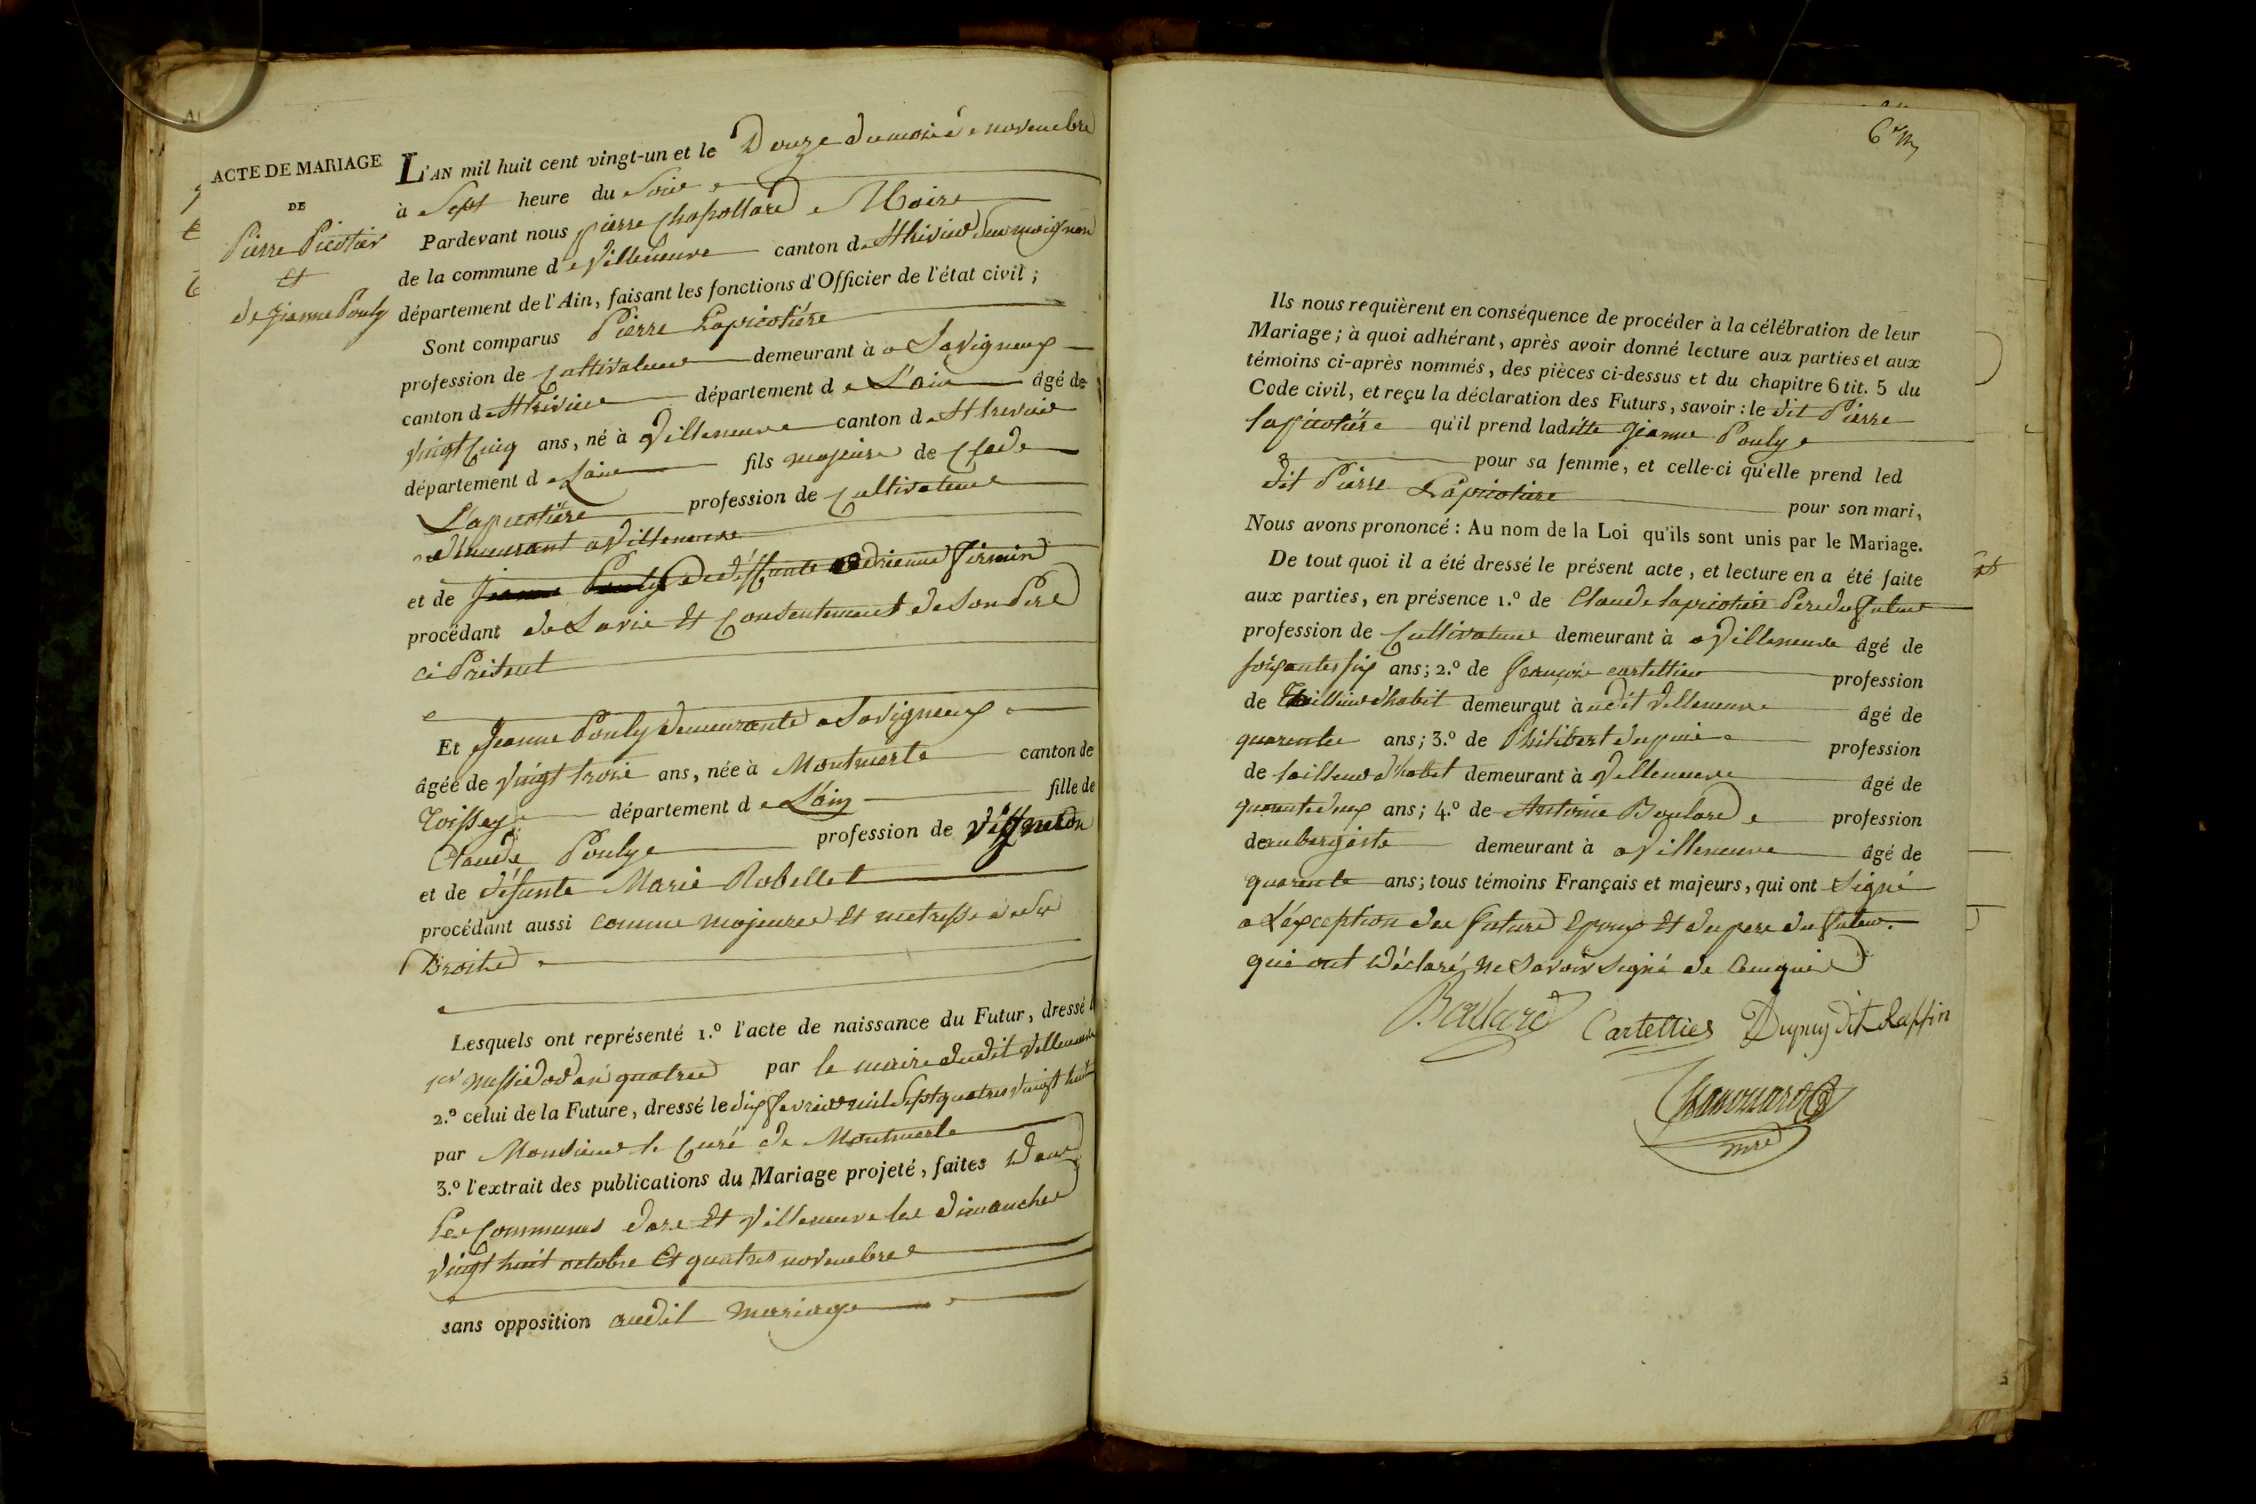 ACTE DE MARIAGE
DE
Pierre Picotier
et
de Jeanne Pouly
L'AN mil huit cent vingt-un et le Douze du mois de novembre
à Sept heure du Soir
Pardevant nous pierre Chapollard Maire
de la commune de Villeneuve canton de
département de l'Ain, faisant les fonctions d'Officier de l'état civil;
Sont comparus Pierre Lapicotiére
profession de Cultivateur demeurant à a Savigneux
canton de département de L'ain âgé de
vingt Cinq ans, né à Villeneuve canton de
département de Lain fils majeure de
L'apicotiére profession de Cultivateur
demeurant a Villeneuve
et de Jeanne Pouly de deffunte Firmin
procédant de Lavie et Consentement de Son Pere
ci Présent
Et Jeanne Pouly demeurante a Savigneux
âgée de vingt trois ans, née à Montmerle canton de
Toissey département de L'ain fille de
Claude Pouly profession de
et de défunte Marie Robellet
procédant aussi comme majeure et metresse de Se
Droits
Lesquels ont représenté 1.º l'acte de naissance du Futur, dressé
1er messidor an quatre par le maire dudit Villeneuve
2.º celui de la Future, dressé le dix fevrier mil Sept quatres vingt huit
par Monsieur le Curé de Montmerle
3.º l'extrait des publications du Mariage projeté, faites Dans
Les Communes dars et Villeneuve les dimanches
vingt huit octobre Et quatres novembre
sans opposition audit mariage
6e m
Ils nous requièrent en conséquence de procéder à la célébration de leur
Mariage; à quoi adhérant, après avoir donné lecture aux parties et aux
témoins ci-après nommés, des pièces ci-dessus et du chapitre 6 tit. 5 du
Code civil, et reçu la déclaration des Futurs, savoir: le dit Pierre
lapicotiére qu'il prend laditte Jeanne Pouly
pour sa femme, et celle-ci qu'elle prend led
dit Pierre Lapicotiere pour son mari,
Nous avons prononcé: Au nom de la Loi qu'ils sont unis par le Mariage.
De tout quoi il a été dressé le présent acte, et lecture en a été faite
aux parties, en présence 1.º de Claude lapicotiere Pere du futur
profession de Cultivateur demeurant à a Villeneuve âgé de
soixantes six ans; 2.º de françois cartellier profession
de tailleur d'habit demeurant à udit Villeneuve âgé de
quarente ans; 3.º de Philibert dupuis profession
de tailleur d'habit demeurant à Villeneuve âgé de
quarante deux ans; 4.º de Antoine Boulard profession
de aubergiste demeurant à a Villeneuve âgé de
quarente ans; tous témoins Français et majeurs, qui ont Signé
a L'éxception des future Epoux Et du pere du futur.
qui ont déclaré ne Savoir Signé de Cenquis
Boulard Cartellies Dupuy dit Raffin
mre